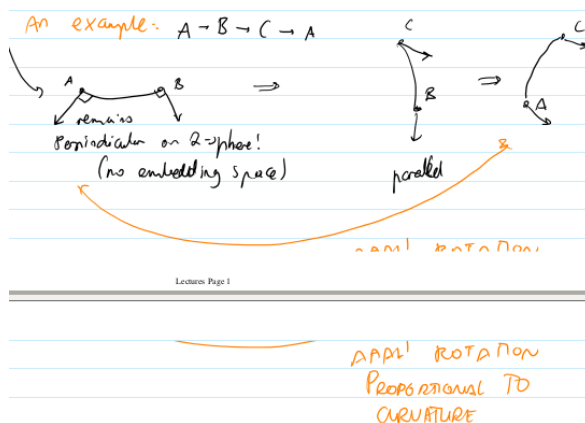 An example: A → B → C → A
C
C
A
B
⇒
⇒
B
A
remains
Perpindicular on 2-sphere!
(no embedding space)
parallel
ROTATION
Lectures Page 1
ROTATION
PROPORTIONAL TO
CURVATURE